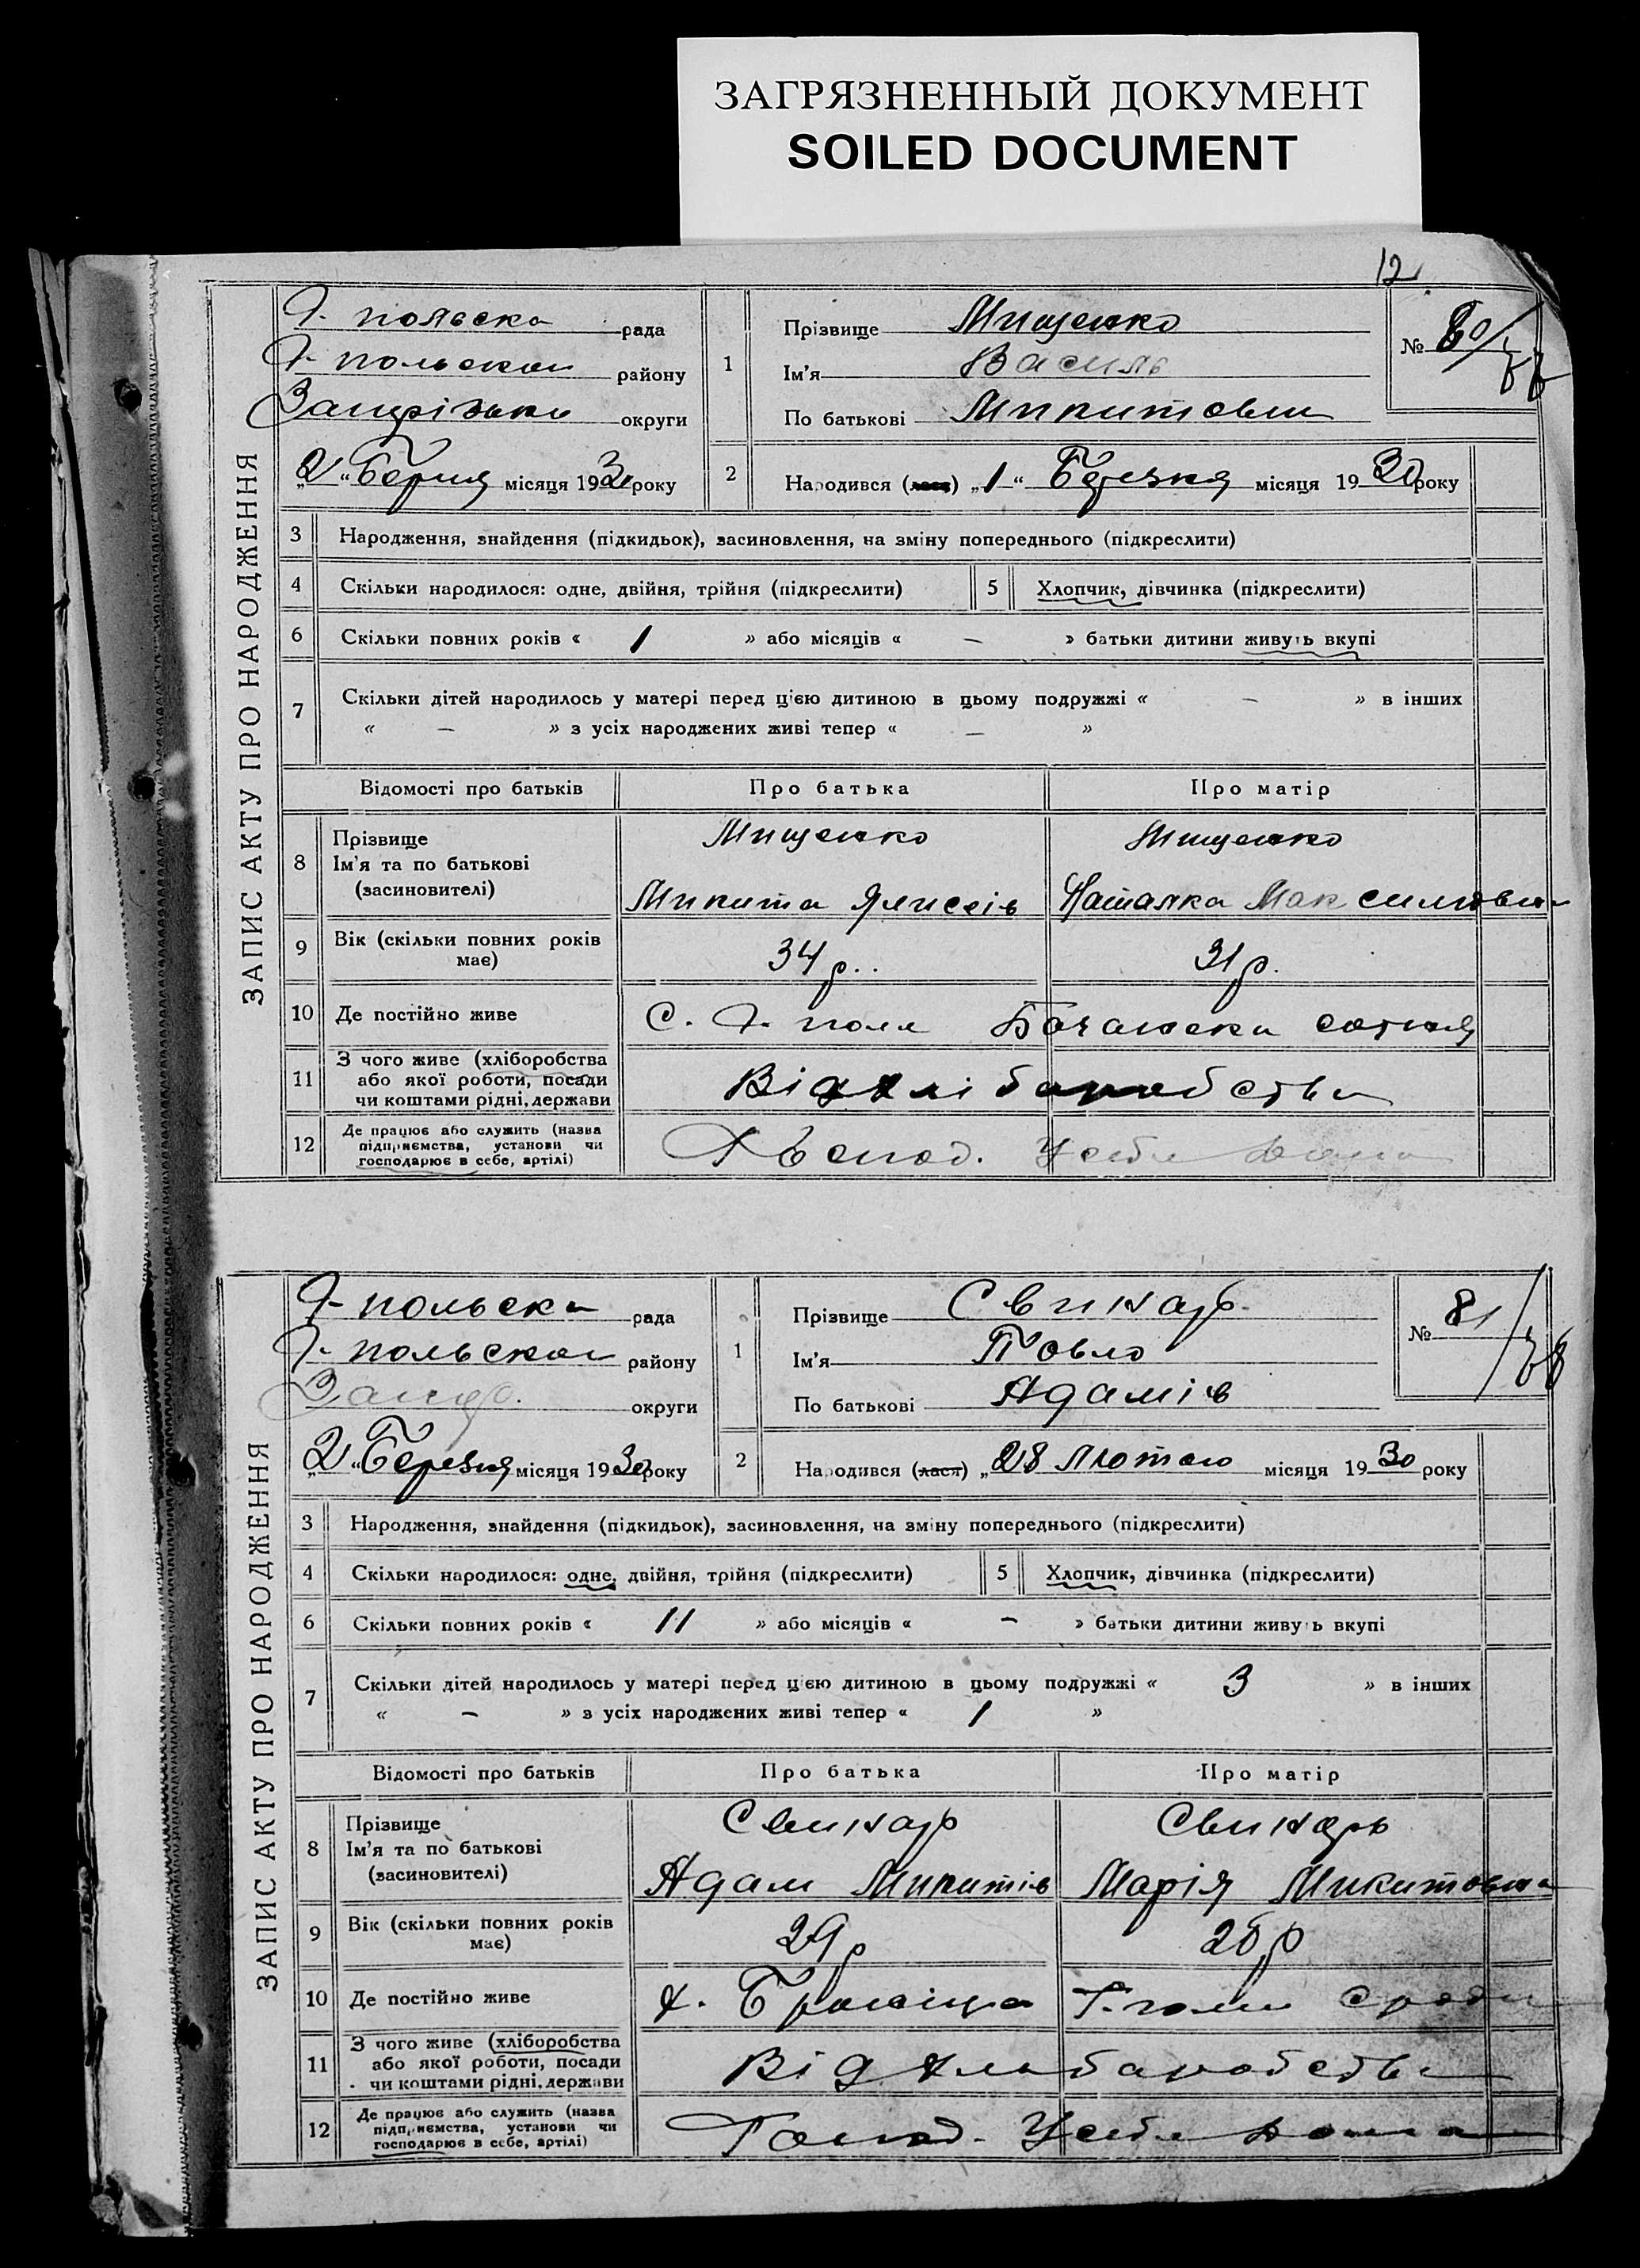 ЗАГРЯЗНЕННЫЙ ДОКУМЕНТ
SOILED DOCUMENT
12
ЗАПИС АКТУ ПРО НАРОДЖЕННЯ
польська рада
польского району
округи
„2“ місяця 1930 року
1 Прізвище Мищенко
Ім'я Василь
По батькові Микитович
№ 80/
2 Народився (лася) „1“ Березня місяця 1930 року
3 Народження, знайдення (підкидьок), засиновлення, на зміну попереднього (підкреслити)
4 Скільки народилося: одне, двійня, трійня (підкреслити) 5 Хлопчик, дівчинка (підкреслити)
6 Скільки повних років « 1 » або місяців « — » батьки дитини живуть вкупі
7 Скільки дітей народилось у матері перед цією дитиною в цьому подружжі « — » в інших
« — » з усіх народжених живі тепер « — »
Відомості про батьків Про батька Про матір
8 Прізвище Мищенко Мищенко
Ім'я та по батькові
(засиновителі) Микита Наталка Максимовна
9 Вік (скільки повних років має) 34 р. 31 р.
10 Де постійно живе С. поле
11 З чого живе (хліборобства або якої роботи, посади чи коштами рідні, держави Від хліборобства
12 Де працює або служить (назва підприємства, установи чи господарює в себе, артілі) Господ. У себе дома
ЗАПИС АКТУ ПРО НАРОДЖЕННЯ
польська рада
польского району
округи
„2“ Березня місяця 1930 року
1 Прізвище Свинарь
Ім'я Павло
По батькові Адамів
№ 81/
2 Народився (лася) „28 Лютого місяця 1930 року
3 Народження, знайдення (підкидьок), засиновлення, на зміну попереднього (підкреслити)
4 Скільки народилося: одне, двійня, трійня (підкреслити) 5 Хлопчик, дівчинка (підкреслити)
6 Скільки повних років « 11 » або місяців « — » батьки дитини живуть вкупі
7 Скільки дітей народилось у матері перед цією дитиною в цьому подружжі « 3 » в інших
« — » з усіх народжених живі тепер « 1 »
Відомості про батьків Про батька Про матір
8 Прізвище Свинарь Свинарь
Ім'я та по батькові
(засиновителі) Адам Микитів Марія Микитовна
9 Вік (скільки повних років має) 29 р
10 Де постійно живе х.
11 З чого живе (хліборобства або якої роботи, посади чи коштами рідні, держави Від хліборобства
12 Де працює або служить (назва підприємства, установи чи господарює в себе, артілі) Господ. У себе дома